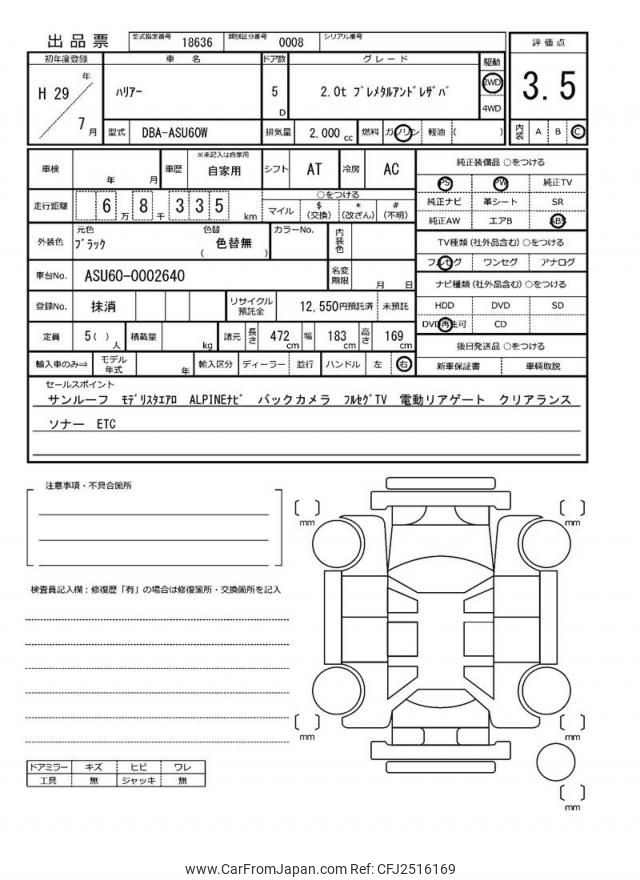 出品票 型式指定番号 18636 類別区分番号 0008 シリアル番号
初年度登録 車名 ドア数 グレード 駆動 評価点
H 29 年 7 月 ﾊﾘｱｰ 5 D 2.0t ﾌﾟﾚﾒﾀﾙｱﾝﾄﾞﾚｻﾞﾊﾞ 2WD 4WD 3.5
型式 DBA-ASU60W 排気量 2.000 cc 燃料 ガソリン 軽油 ( ) 内装 A B C
車検 年 月 車歴 ※未記入は自家用 自家用 シフト AT 冷房 AC 純正装備品 ○をつける
PS PW 純正TV
走行距離 6 万 8 千 3 3 5 km ○をつける マイル $ (交換) * (改ざん) # (不明)
純正ナビ 革シート SR
純正AW エアB ABS
外装色 元色 ﾌﾞﾗｯｸ 色替 ( 色替無 ) カラーNo. 内装色
TV種類 (社外品含む) ○をつける
フルセグ ワンセグ アナログ
車台No. ASU60-0002640 名変期限 月 日
ナビ種類 (社外品含む) ○をつける
登録No. 抹消 リサイクル預託金 12,550円預託済 未預託
HDD DVD SD
DVD再生可 CD
定員 5( ) 人 積載量 kg 諸元 長さ 472 cm 幅 183 cm 高さ 169 cm
後日発送品 ○をつける
輸入車のみ⇒ モデル年式 年 輸入区分 ディーラー 並行 ハンドル 左 右 新車保証書 車輌取説
セールスポイント
サンルーフ ﾓﾃﾞﾘｽﾀｴｱﾛ ALPINEﾅﾋﾞ バックカメラ ﾌﾙｾｸﾞTV 電動リアゲート クリアランス
ソナー ETC
注意事項・不具合箇所
検査員記入欄：修復歴「有」の場合は修復箇所・交換箇所を記入
mm mm
mm mm
mm
ドアミラー キズ ヒビ ワレ
工具 無 ジャッキ 無
www.CarFromJapan.com Ref: CFJ2516169